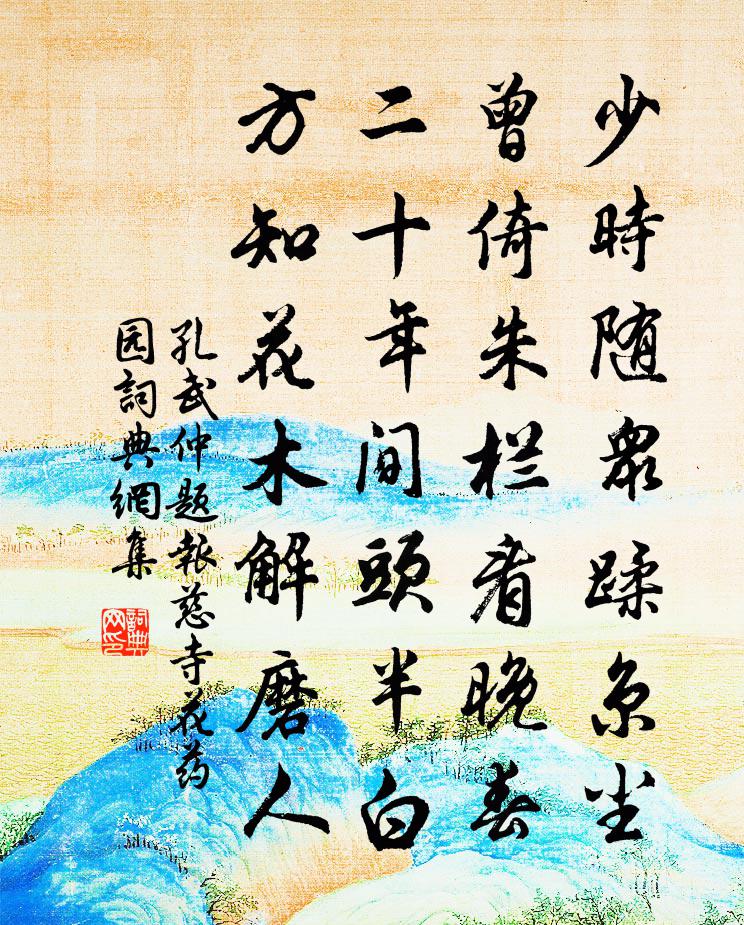 少時随眾蹂京尘
曾倚朱栏看晚春
二十年间頭半白
方知花木解磨人
孔武仲题報慈寺花药
园詞典網集
詞典
网印